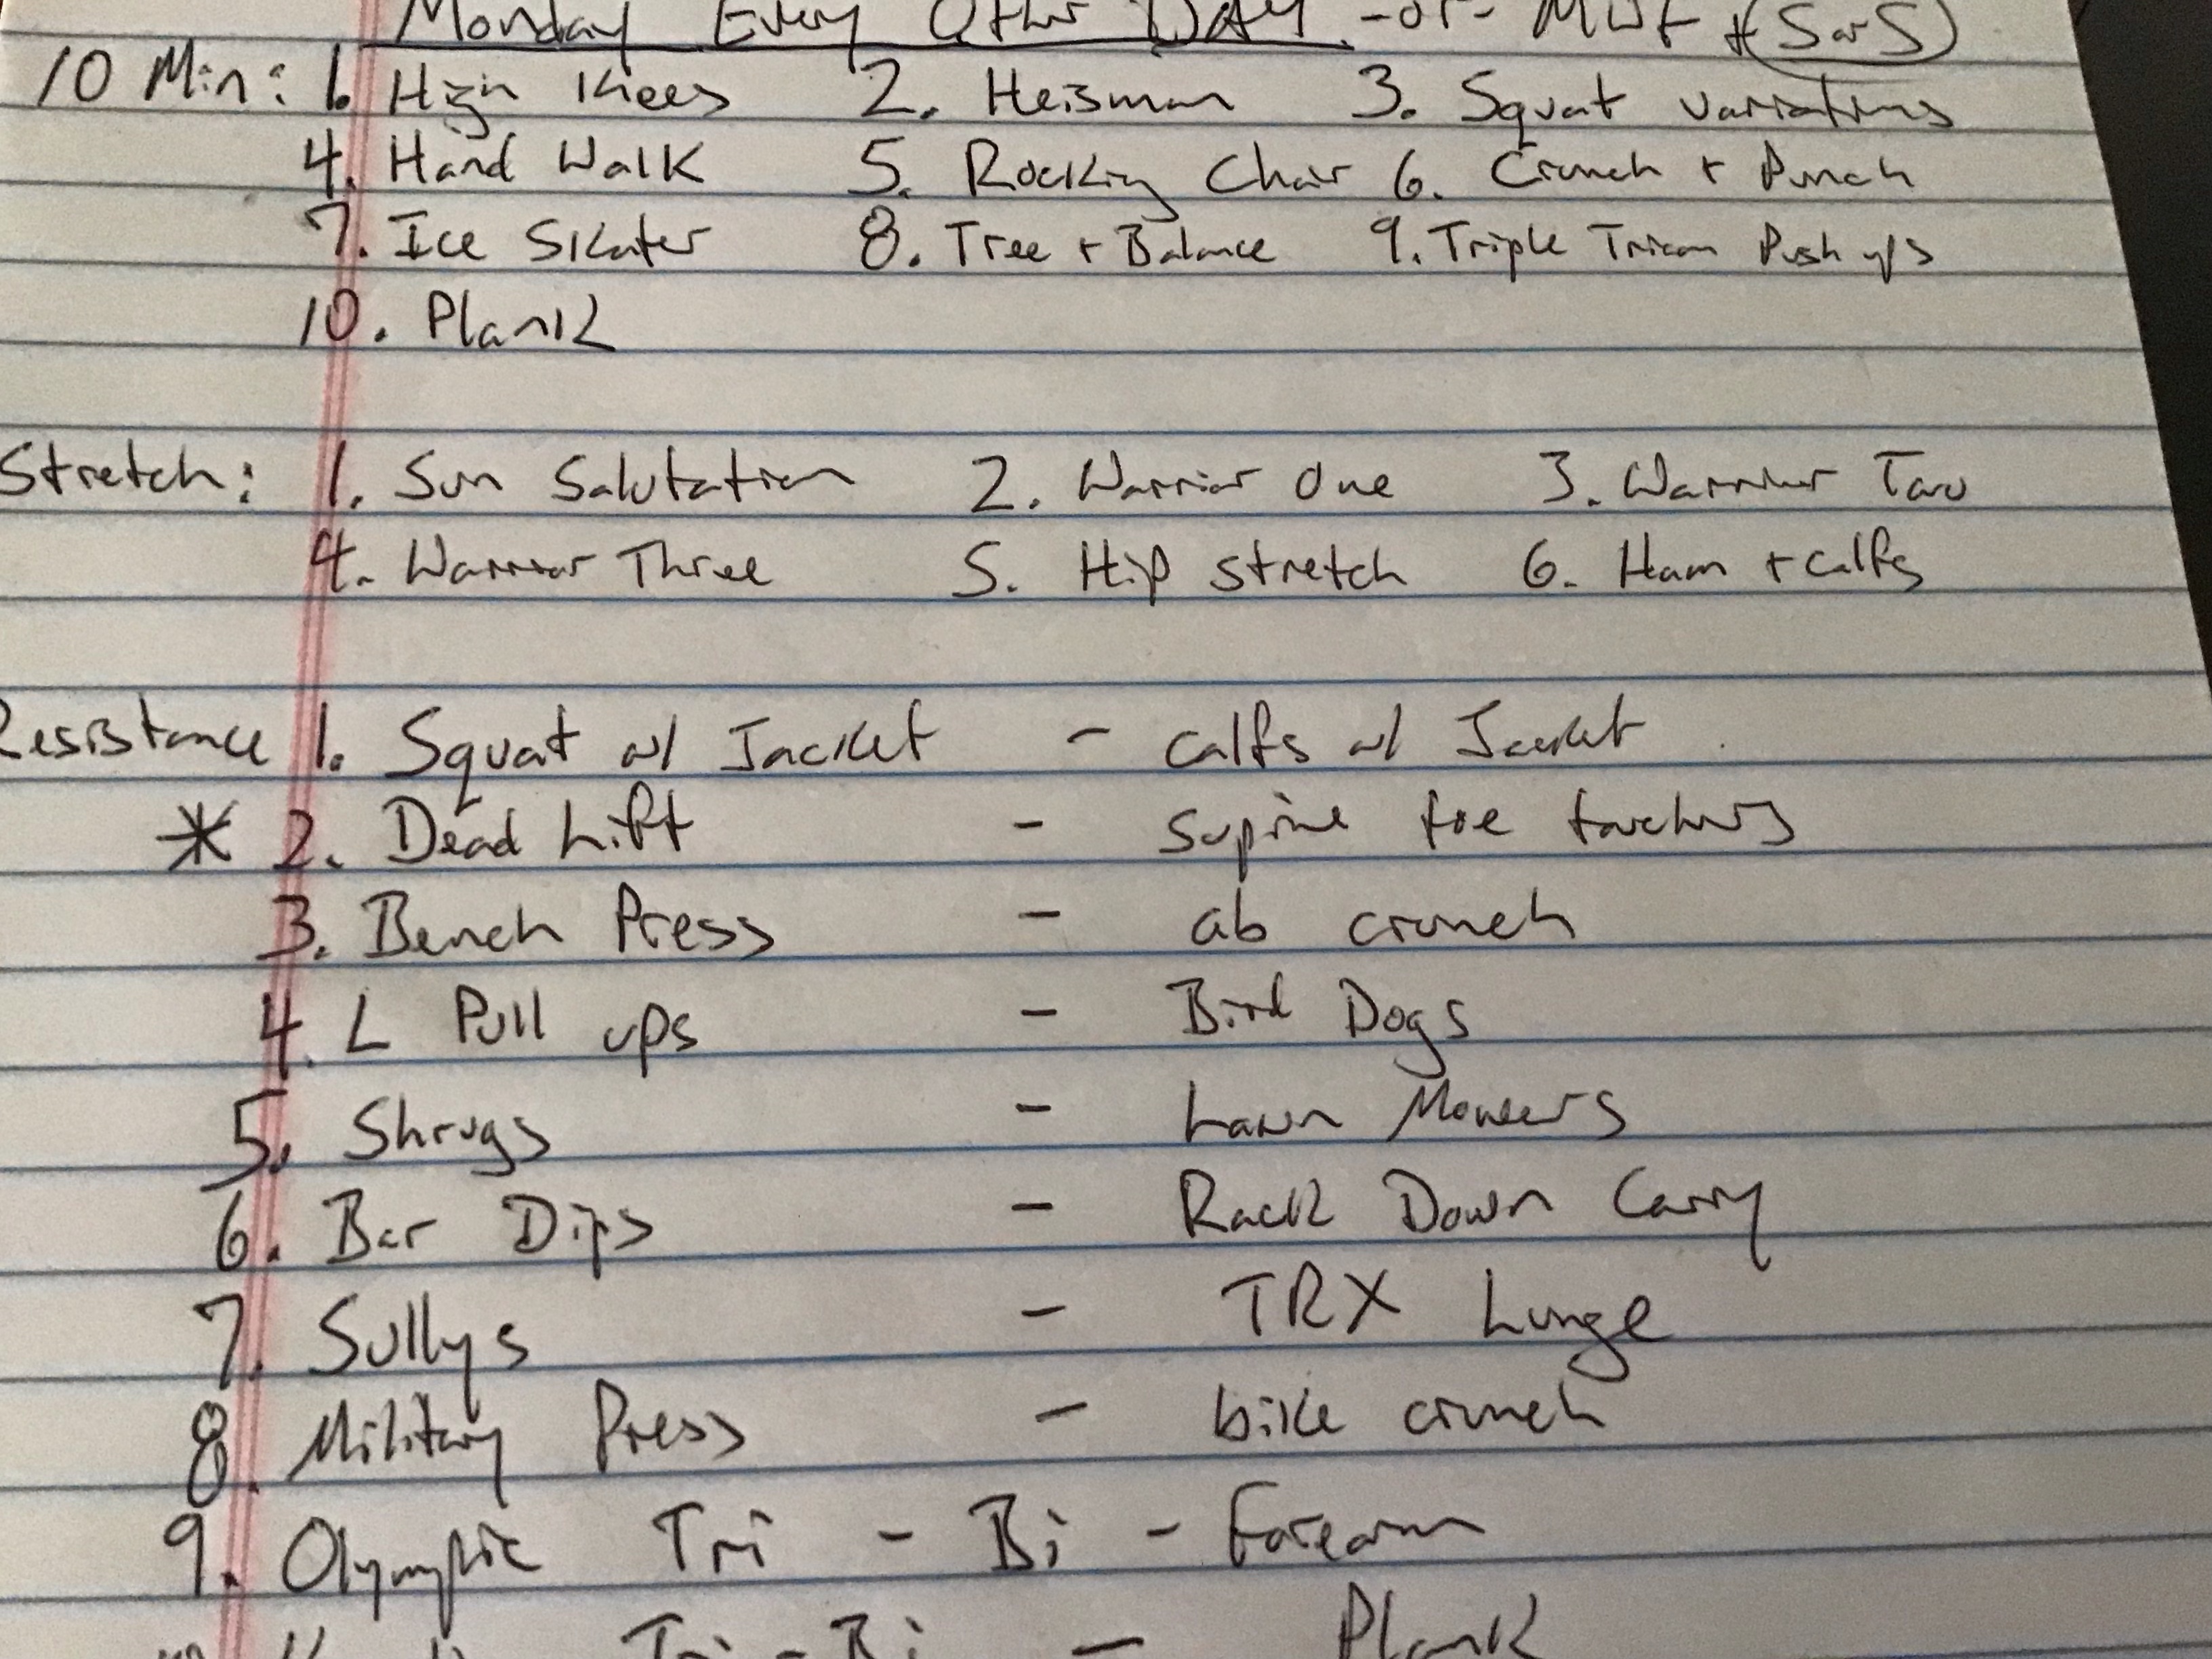 Monday Every Other DAY -or- MWF + (S or S)
10 Min: 1. High Knees 2. Heisman 3. Squat variations
4. Hand Walk 5. Rocking Chair 6. Crunch + Punch
7. Ice Skater 8. Tree + Balance 9. Triple Tricon Push ups
10. Plank
Stretch: 1. Sun Salutation 2. Warrior One 3. Warrior Two
4. Warrior Three 5. Hip stretch 6. Ham + calfs
Resistance 1. Squat w/ Jacket - calfs w/ Jacket
* 2. Dead Lift - supine toe touchers
3. Bench Press - ab crunch
4. L Pull ups - Bird Dogs
5. Shrugs - Lawn Mowers
6. Bar Dips - Rack Down Carry
7. Sullys - TRX Lunge
8. Military Press - bike crunch
9. Olympic Tri - Bi - Forearm
Tri - Bi - Plank